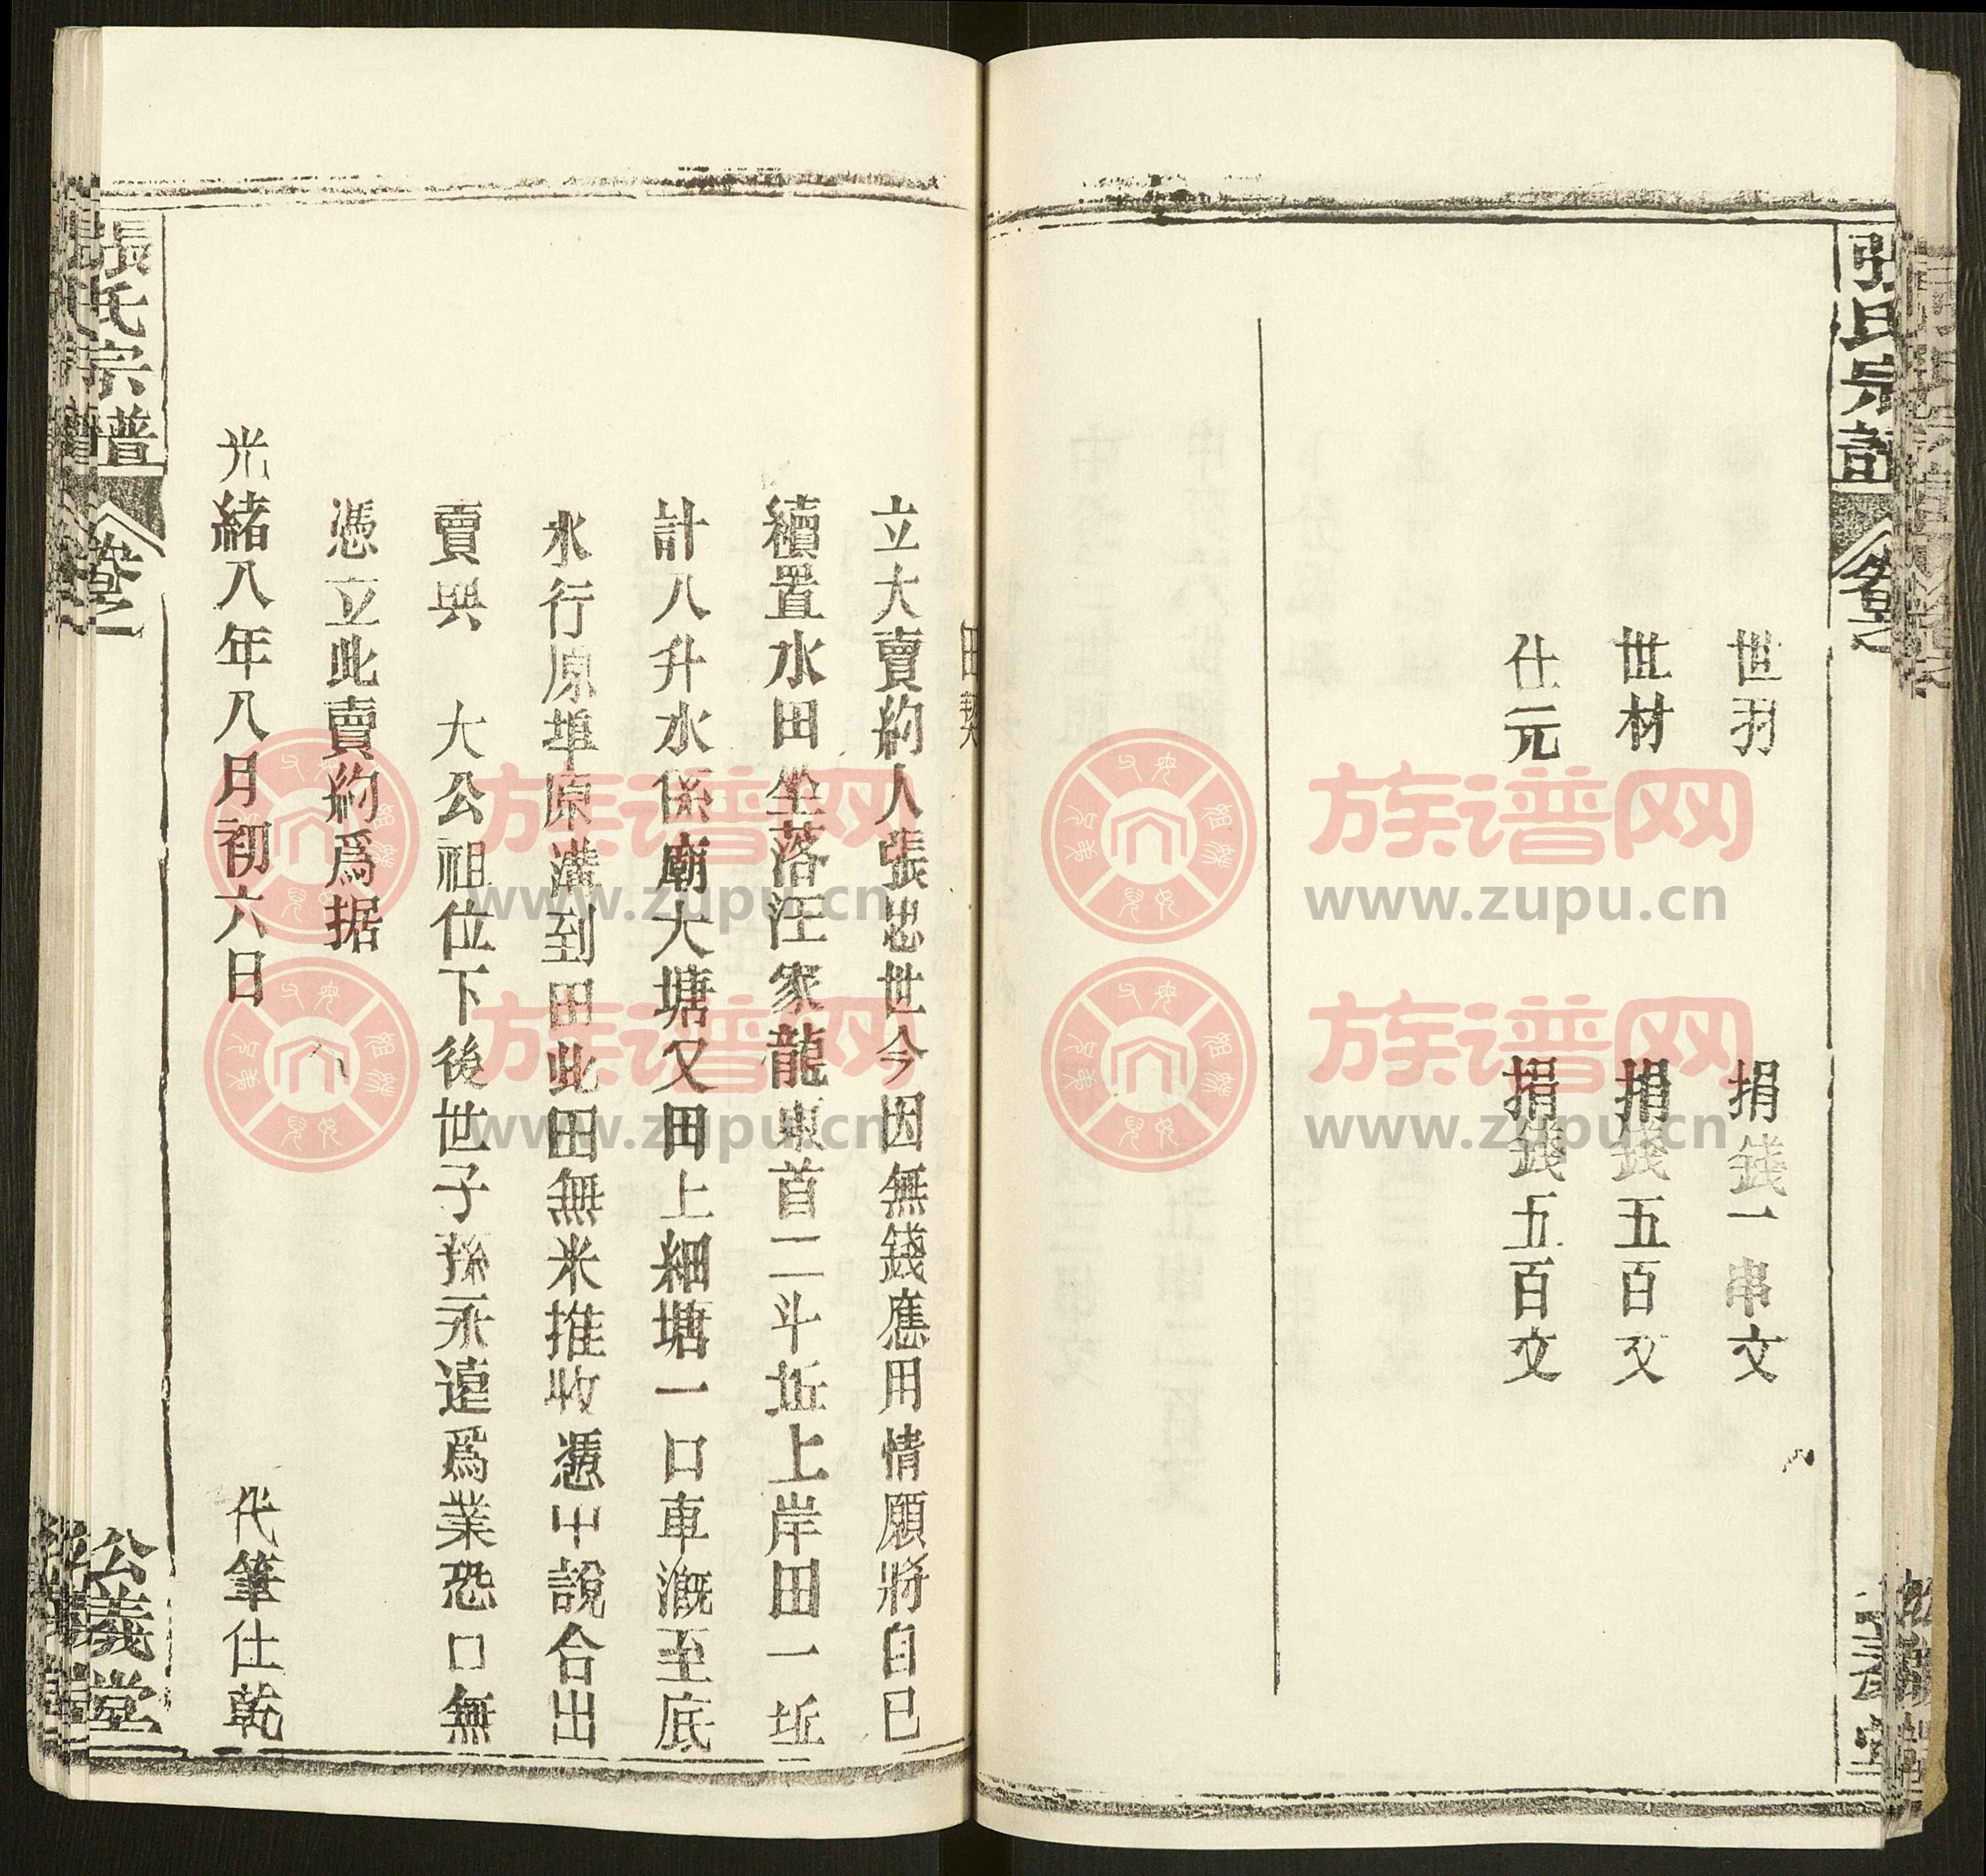 張氏宗譜
卷之
世羽 捐錢一串文
世材 捐錢五百文
仕元 捐錢五百文
田契
立大賣約人張忠世今因無錢應用情願將自已
續置水田坐落汪家龍東首二斗坵上岸田一坵
計八升水係廟大塘又田上細塘一口車溉至底
水行原埠原溝到田此田無米推收憑中說合出
賣與 大公祖位下後世子孫永遠爲業恐口無
憑立此賣約爲据
光緒八年八月初六日 代筆仕乾
張氏宗譜
卷之一
公義堂
族谱网
www.zupu.cn
族谱网
www.zupu.cn
族谱网
www.zupu.cn
族谱网
www.zupu.cn